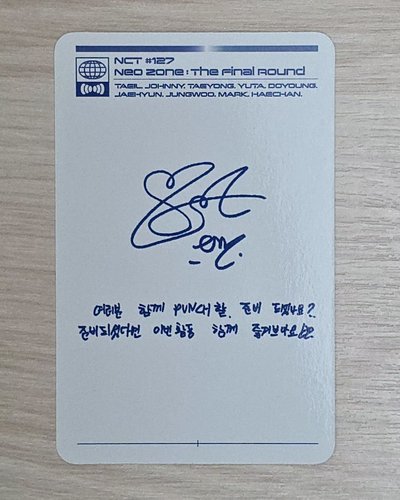 NCT #127
Neo Zone : The Final Round
TAEIL, JOHNNY, TAEYONG, YUTA, DOYOUNG,
JAEHYUN, JUNGWOO, MARK, HAECHAN.
여러분 함께 PUNCH할 준비 되셨나요?
준비되셨다면 이번 활동 함께 즐겨보아요